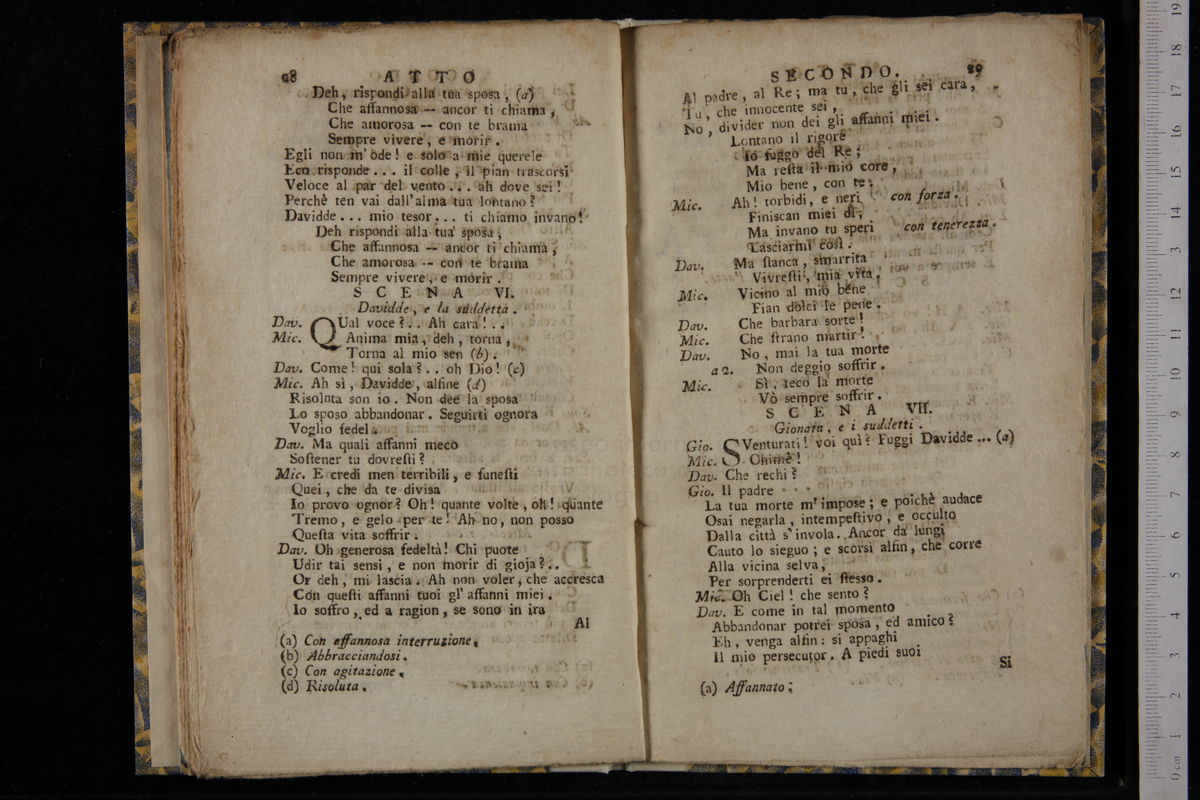 28 ATTO
Deh, rispondi alla tua sposa, (a)
Che affannosa -- ancor ti chiama,
Che amorosa -- con te brama
Sempre vivere, e morir.
Egli non m'ode! e solo a mie querele
Eco risponde... il colle, il pian trascorsi
Veloce al par del vento... ah dove sei!
Perchè ten vai dall'alma tua lontano?
Davidde... mio tesor... ti chiamo invano!
Deh rispondi alla tua sposa,
Che affannosa -- ancor ti chiama,
Che amorosa -- con te brama
Sempre vivere, e morir.
SCENA VI.
Davidde, e la suddetta.
Dav. QUal voce?.. Ah cara!..
Mic. Anima mia, deh, torna,
Torna al mio sen (b).
Dav. Come! qui sola?.. oh Dio! (c)
Mic. Ah sì, Davidde, alfine (d)
Risoluta son io. Non dee la sposa
Lo sposo abbandonar. Seguirti ognora
Voglio fedel.
Dav. Ma quali affanni meco
Soſtener tu dovreſti?
Mic. E credi men terribili, e funeſti
Quei, che da te divisa
Io provo ognor? Oh! quante volte, oh! quante
Tremo, e gelo per te! Ah no, non posso
Queſta vita soffrir.
Dav. Oh generosa fedeltà! Chi puote
Udir tai sensi, e non morir di gioja?..
Or deh, mi lascia. Ah non voler, che accresca
Con queſti affanni tuoi gl'affanni miei.
Io soffro, ed a ragion, se sono in ira
Al
(a) Con affannosa interruzione.
(b) Abbracciandosi.
(c) Con agitazione.
(d) Risoluta.
SECONDO. 29
Al padre, al Re; ma tu, che gli sei cara,
Tu, che innocente sei,
No, divider non dei gli affanni miei.
Lontano il rigore
Io fuggo del Re;
Ma reſta il mio core,
Mio bene, con te.
Mic. Ah! torbidi, e neri con forza.
Finiscan miei dì;
Ma invano tu speri con tenerezza.
Lasciarmi così.
Dav. Ma ſtanca, smarrita
Vivreſti, mia vita.
Mic. Vicino al mio bene
Fian dolci le pene.
Dav. Che barbara sorte!
Mic. Che ſtrano martir!
Dav. No, mai la tua morte
a 2. Non deggio soffrir.
Mic. Sì, teco la morte
Vò sempre soffrir.
SCENA VII.
Gionata, e i suddetti.
Gio. SVenturati! voi quì? Fuggi Davidde... (a)
Mic. Ohimè!
Dav. Che rechi?
Gio. Il padre
La tua morte m'impose; e poichè audace
Osai negarla, intempeſtivo, e occulto
Dalla città s'invola. Ancor da lungi
Cauto lo sieguo; e scorsi alfin, che corre
Alla vicina selva,
Per sorprenderti ei ſtesso.
Mic. Oh Ciel! che sento?
Dav. E come in tal momento
Abbandonar potrei sposa, ed amico?
Eh, venga alfin: si appaghi
Il mio persecutor. A piedi suoi
Si
(a) Affannato;